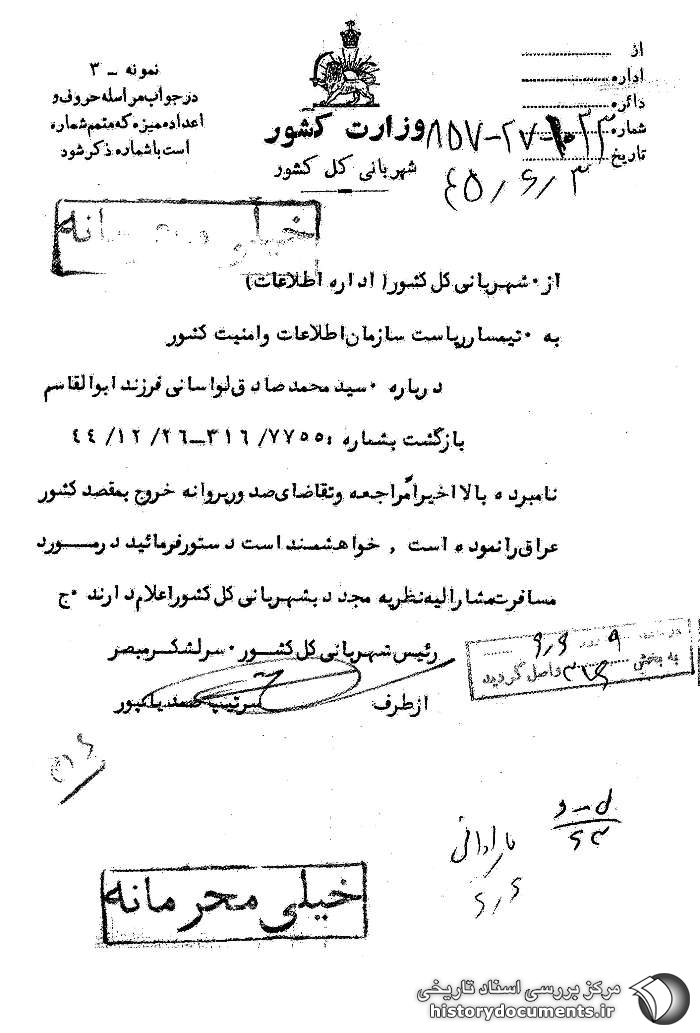 نمونه - ٣
در جواب مراسله حروف و
اعداد ممیزه که متمم شماره
است با شماره ذکر شود
وزارت کشور
شهربانی کل کشور
از
اداره
دائره
شماره
تاریخ ٤٥٫٦٫٣
خیلی محرمانه
از ٠ شهربانی کل کشور ( اداره اطلاعات )
به ٠ تیمسار ریاست سازمان اطلاعات و امنیت کشور
درباره ٠ سید محمد صادق لواسانی فرزند ابوالقاسم
بازگشت بشماره : ٣١٦/٧٧٥٥ـ٢٦/ ١٢/ ٤٤
نامبرده بالا اخیراً مراجعه و تقاضای صدور پروانه خروج بمقصد کشور
عراق را نموده است , خواهشمند است دستور فرمائید در مـــورد
مسافرت مشارالیه نظریه مجدد بشهربانی کل کشور اعلام دارند ٠ج
رئیس شهربانی کل کشـــور ٠ سرلشکر مبصر
از طرف سرتیپ صمدیانپور
به بخش ٣١٦ واصل گردید
خیلی محرمانه
مرکز بررسی اسناد تاریخی
historydocuments.ir